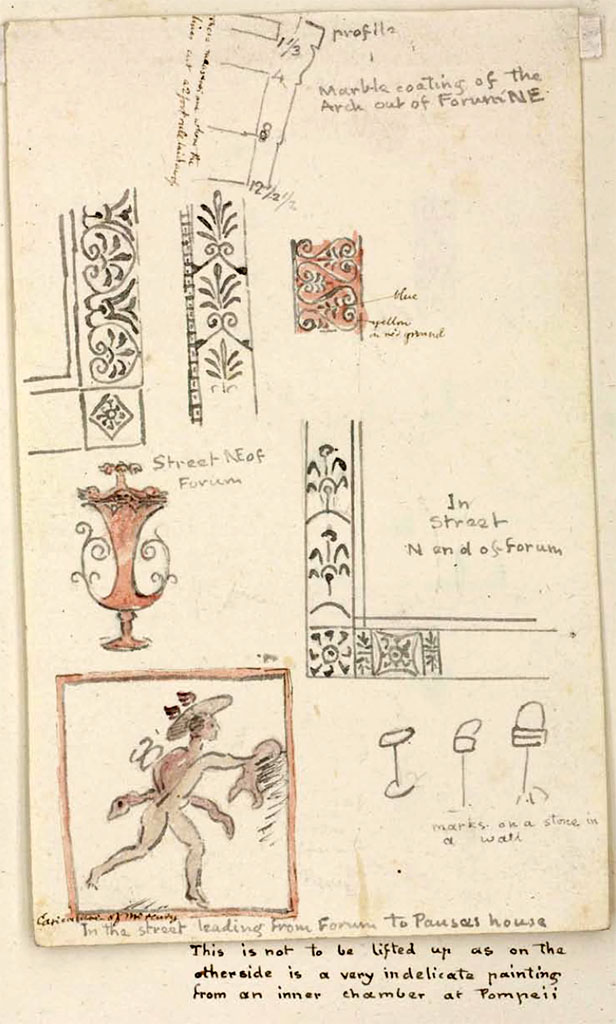 profile
1 1/3
Marble coating of the
Arch out of Forum NE
4
8
12 1/2 1/2
blue
yellow
ground
Street NE of
Forum
In
Street
N end of Forum
marks on a stone in
a wall
Caricature of Mercury
In the street leading from Forum to Pansas house
This is not to be lifted up as on the
otherside is a very indelicate painting
from an inner chamber at Pompeii